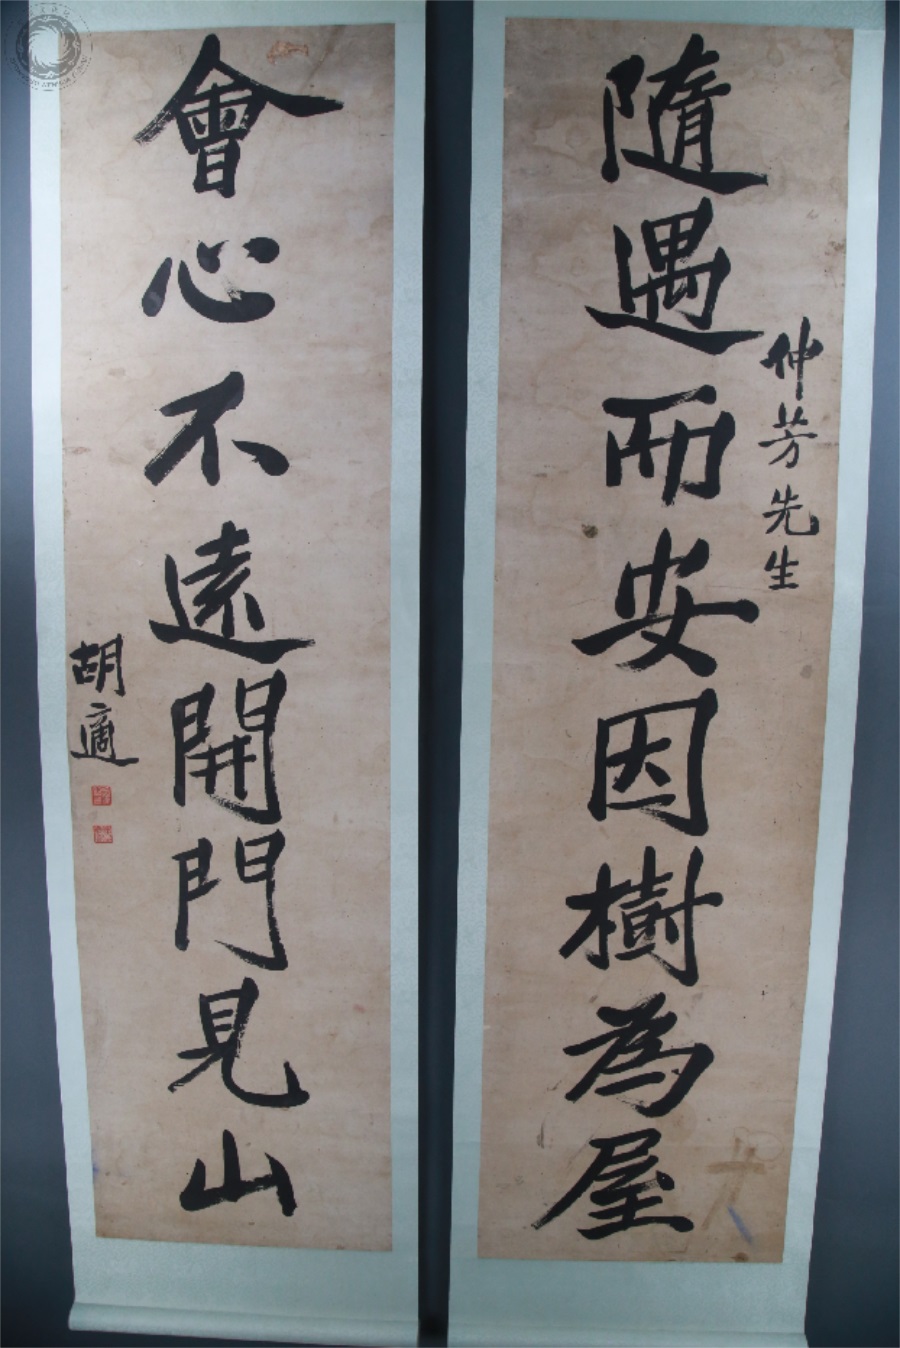 仲芳先生
隨遇而安因樹為屋
會心不遠開門見山
胡適